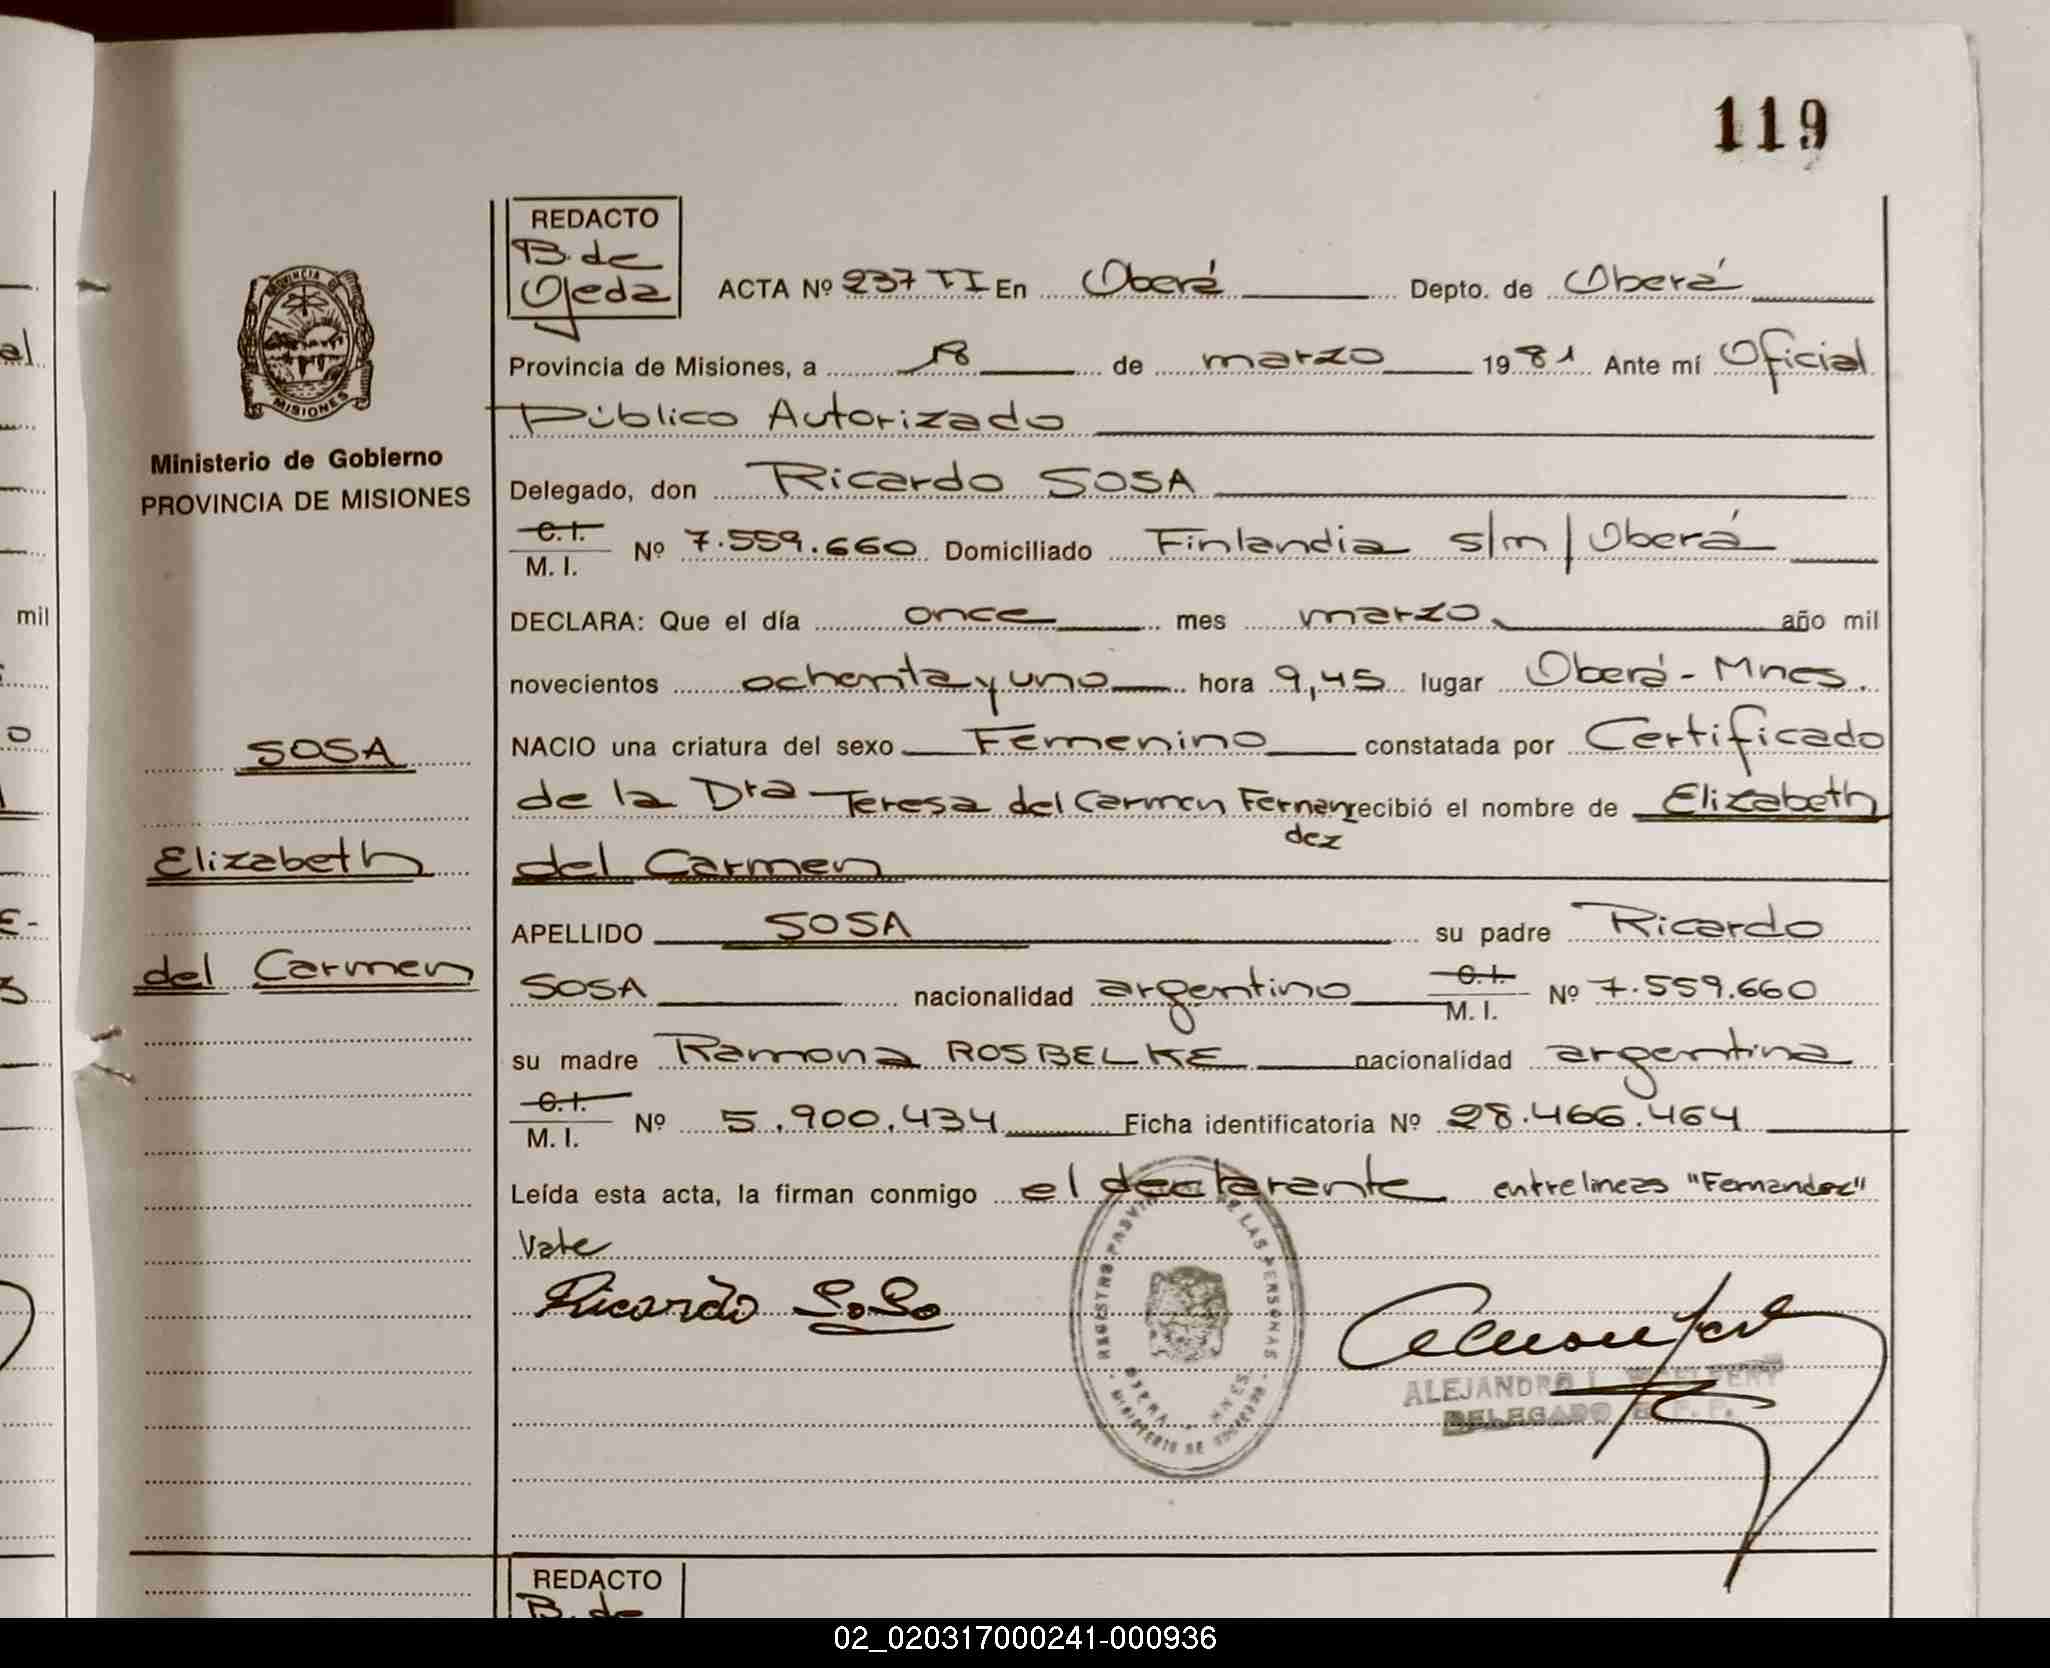 119
REDACTO
B. de
Ojeda
ACTA Nº 237 TI En Oberá Depto. de Oberá
Provincia de Misiones, a 18 de marzo 1981 Ante mí Oficial
Público Autorizado
PROVINCIA DE
MISIONES
Ministerio de Gobierno
PROVINCIA DE MISIONES
Delegado, don Ricardo SOSA
C. I.
M. I. Nº 7.559.660 Domiciliado Finlandia s/m/Oberá
DECLARA: Que el día once mes marzo año mil
novecientos ochenta y uno hora 9,45 lugar Oberá - Mnes.
NACIO una criatura del sexo Femenino constatada por Certificado
de la Dra Teresa del Carmen Fernan recibió el nombre de Elizabeth
dez
del Carmen
SOSA
Elizabeth
del Carmen
APELLIDO SOSA su padre Ricardo
SOSA nacionalidad argentino C. I. M. I. Nº 7.559.660
su madre Ramona ROSBELKE nacionalidad argentina
C. I.
M. I. Nº 5.900.434 Ficha identificatoria Nº 28.466.464
Leída esta acta, la firman conmigo el declarante entrelineas "Fernandez"
Vale
Ricardo Sosa
REGISTRO PROVIN DE LAS PERSONAS
OBERA MNES
MINISTERIO DE GOBIERNO
ALEJANDRO L.
DELEGADO R. P. P.
REDACTO
B. de
mil
02_020317000241-000936